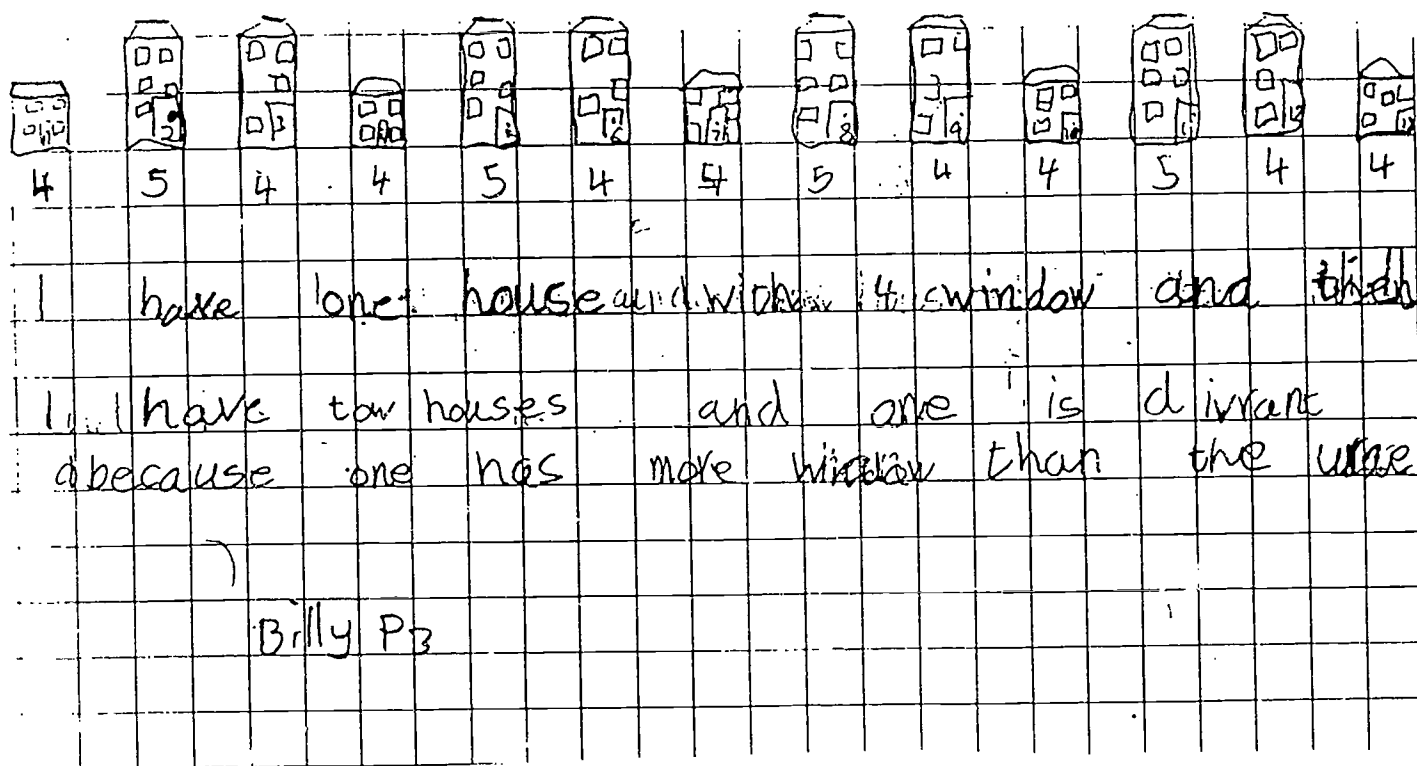 1 2 3 4 5 6 7 8 9 10 11 12 13
4 5 4 4 5 4 4 5 4 4 5 4 4
I have one house and with 4 swindow and then
I have tow houses and one is divrant
abecause one has more window than the urne
Billy P3